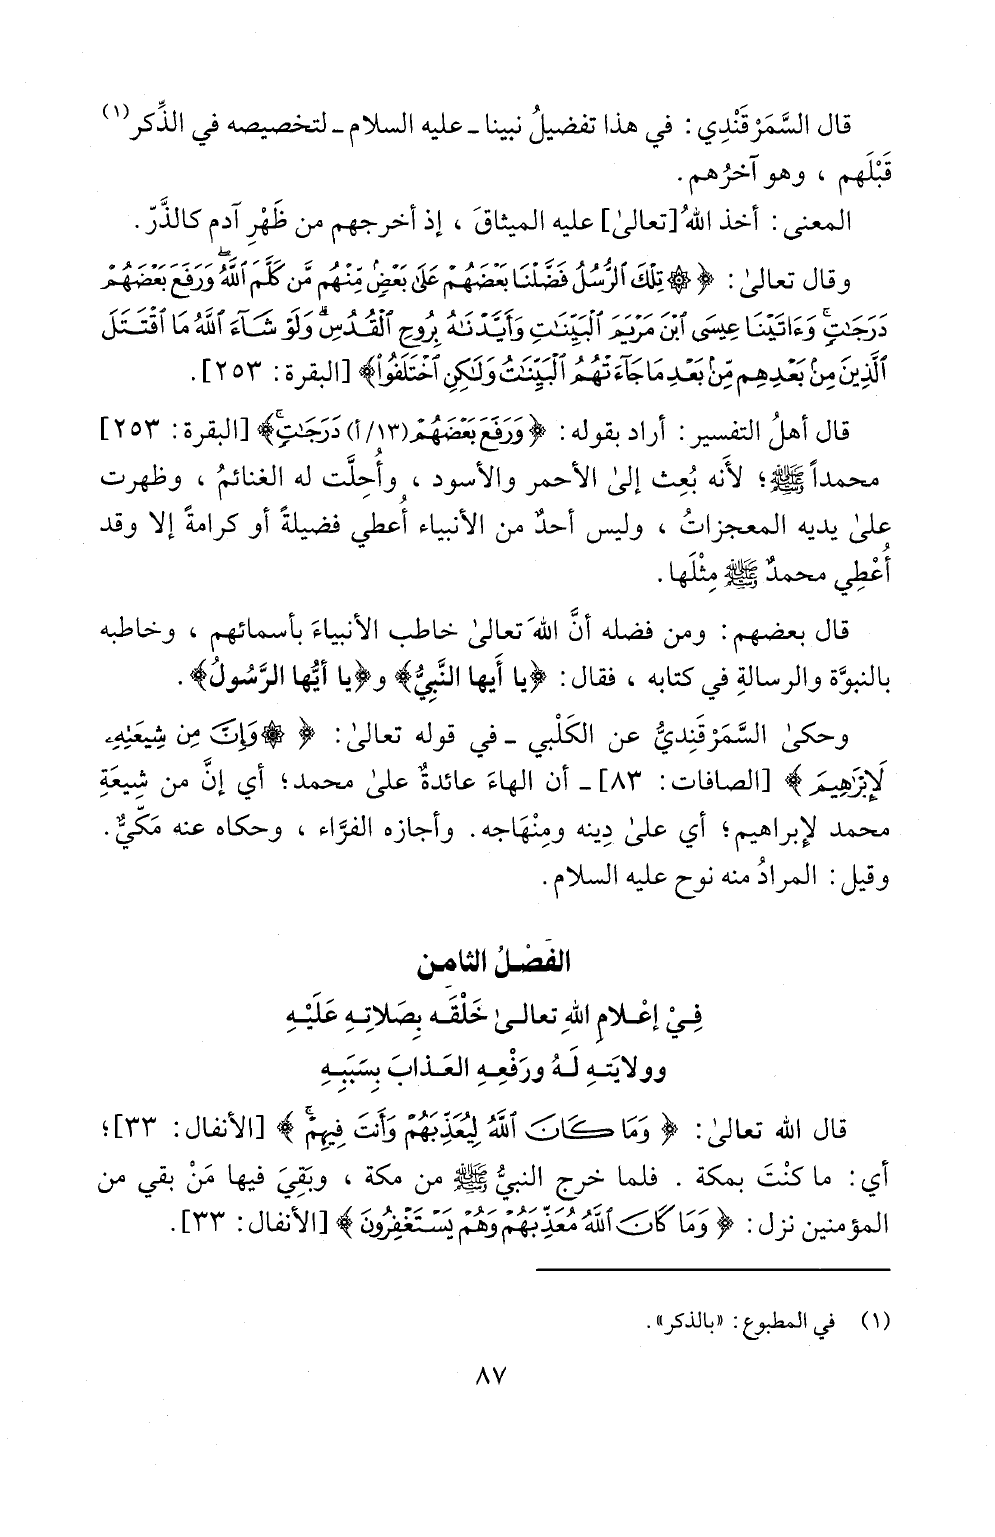 قال السَّمَرْقَنْدِي: في هذا تفضيلُ نبينا ـ عليه السلام ـ لتخصيصه في الذِّكر(١)
قَبْلَهم ، وهو آخرُهم.
المعنى: أخذ اللهُ [تعالىٰ] عليه الميثاقَ ، إذ أخرجهم من ظَهْرِ آدم كالذَّرّ.
وقال تعالىٰ: ﴿ ۞ تِلْكَ ٱلرُّسُلُ فَضَّلْنَا بَعْضَهُمْ عَلَىٰ بَعْضٍ مِّنْهُم مَّن كَلَّمَ ٱللَّهُ وَرَفَعَ بَعْضَهُمْ
دَرَجَٰتٍ وَءَاتَيْنَا عِيسَى ٱبْنَ مَرْيَمَ ٱلْبَيِّنَٰتِ وَأَيَّدْنَٰهُ بِرُوحِ ٱلْقُدُسِ وَلَوْ شَآءَ ٱللَّهُ مَا ٱقْتَتَلَ
ٱلَّذِينَ مِنۢ بَعْدِهِم مِّنۢ بَعْدِ مَا جَآءَتْهُمُ ٱلْبَيِّنَٰتُ وَلَٰكِنِ ٱخْتَلَفُوا۟﴾ [البقرة: ٢٥٣].
قال أهلُ التفسير: أراد بقوله: ﴿وَرَفَعَ بَعْضَهُمْ (١٣/أ) دَرَجَٰتٍ﴾ [البقرة: ٢٥٣]
محمداً ﷺ؛ لأنه بُعِث إلىٰ الأحمر والأسود ، وأُحِلَّت له الغنائمُ ، وظهرت
علىٰ يديه المعجزاتُ ، وليس أحدٌ من الأنبياء أُعطي فضيلةً أو كرامةً إلا وقد
أُعْطِي محمدٌ ﷺ مِثْلَها.
قال بعضهم: ومن فضله أنَّ اللهَ تعالىٰ خاطب الأنبياءَ بأسمائهم ، وخاطبه
بالنبوَّة والرسالةِ في كتابه ، فقال: ﴿يا أَيها النَّبِيُّ﴾ و﴿يا أيُّها الرَّسُولُ﴾.
وحكىٰ السَّمَرْقَنِديُّ عن الكَلْبي ـ في قوله تعالىٰ: ﴿ ۞وَإِنَّ مِن شِيعَتِهِۦ
لَإِبْرَٰهِيمَ ﴾ [الصافات: ٨٣] ـ أن الهاءَ عائدةٌ علىٰ محمد؛ أي إنَّ من شِيعَةِ
محمد لإبراهيم؛ أي علىٰ دِينه ومِنْهَاجه. وأجازه الفرَّاء ، وحكاه عنه مَكّيٌّ.
وقيل: المرادُ منه نوح عليه السلام.
الفَصْلُ الثامِن
فِيْ إعْلامِ اللهِ تعالىٰ خَلْقَه بِصَلاتِهِ عَلَيْهِ
وولايَتهِ لَهُ ورَفْعِهِ العَذابَ بِسَبَبِهِ
قال الله تعالىٰ: ﴿ وَمَا كَانَ ٱللَّهُ لِيُعَذِّبَهُمْ وَأَنتَ فِيهِمْ ﴾ [الأنفال: ٣٣]؛
أي: ما كنْتَ بمكة . فلما خرج النبيُّ ﷺ من مكة ، وبَقِيَ فيها مَنْ بقي من
المؤمنين نزل: ﴿ وَمَا كَانَ ٱللَّهُ مُعَذِّبَهُمْ وَهُمْ يَسْتَغْفِرُونَ ﴾ [الأنفال: ٣٣].
(١) في المطبوع: «بالذكر».
٨٧